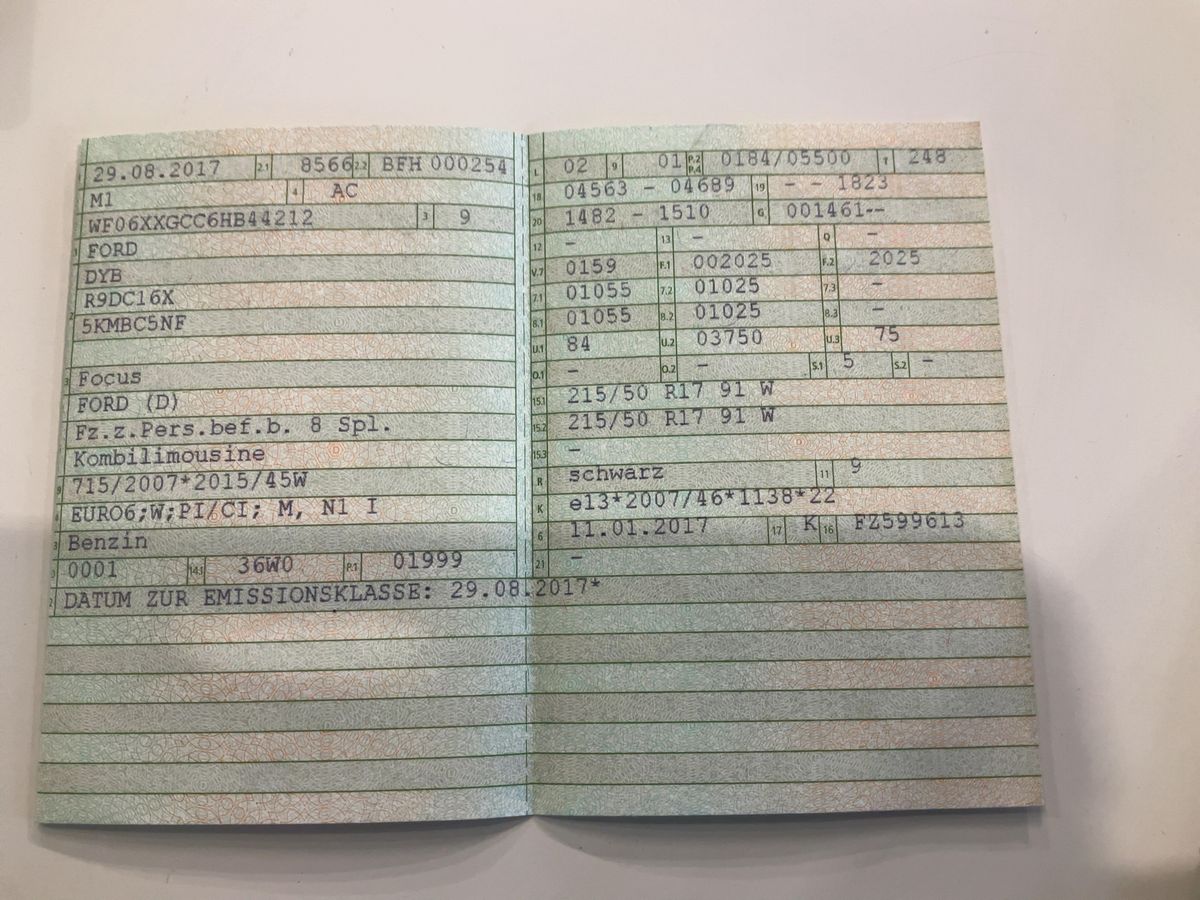 29.08.2017 2.1 8566 2.2 BFH 000254
M1 4 AC
WF06XXGCC6HB44212 3 9
FORD
DYB
R9DC16X
5KMBC5NF
Focus
FORD (D)
Fz.z.Pers.bef.b. 8 Spl.
Kombilimousine
715/2007*2015/45W
EURO6;W;PI/CI; M, N1 I
Benzin
0001 14.1 36W0 P.1 01999
DATUM ZUR EMISSIONSKLASSE: 29.08.2017*
L 02 9 01 P.2 P.4 0184/05500 T 248
18 04563 - 04689 19 - - 1823
20 1482 - 1510 G 001461--
12 - 13 - Q -
V.7 0159 F.1 002025 F.2 2025
7.1 01055 7.2 01025 7.3 -
8.1 01055 8.2 01025 8.3 -
U.1 84 U.2 03750 U.3 75
O.1 - O.2 - S.1 5 S.2 -
15.1 215/50 R17 91 W
15.2 215/50 R17 91 W
15.3 -
R schwarz 11 9
K e13*2007/46*1138*22
6 11.01.2017 17 K 16 FZ599613
21 -